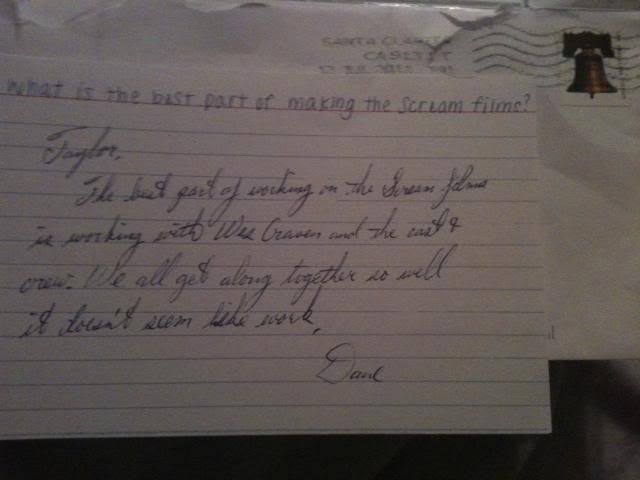 SANTA CLARIT
CA 913
What is the best part of making the Scream films?
Taylor,
The best part of working on the Scream films
is working with Wes Craven and the cast &
crew. We all get along together so well
it doesn't seem like work.
Dane